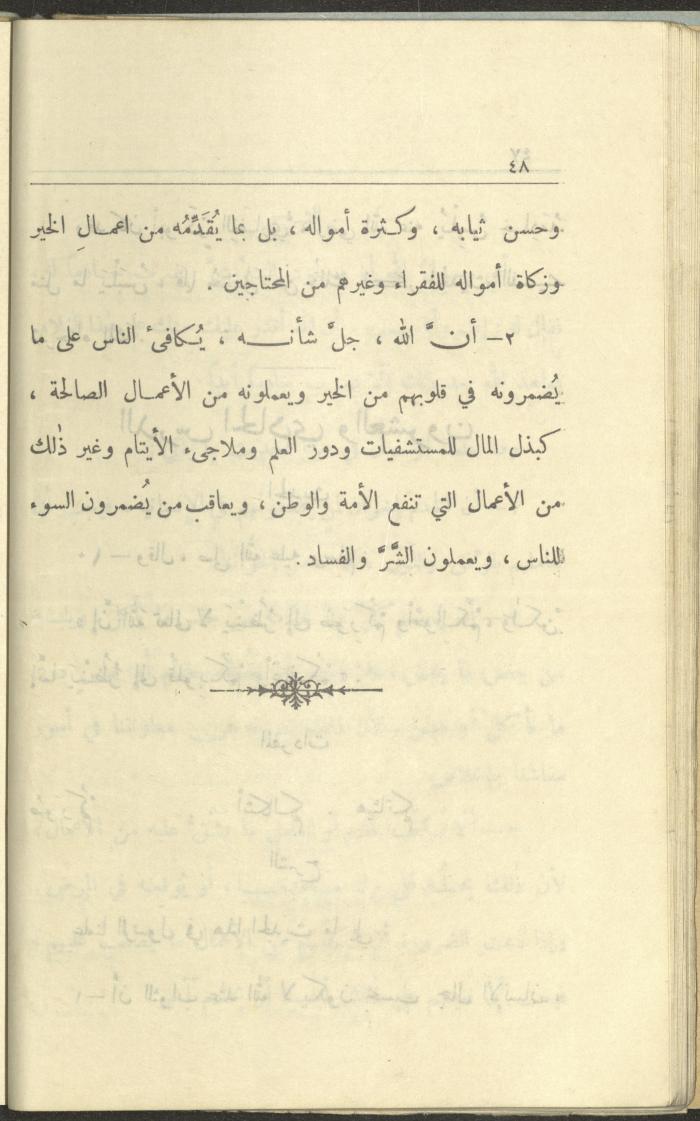 ٤٨
وحسن ثيابه ، وكثرة أمواله ، بل بما يُقَدِّمُه من اعمالِ الخير
وزكاة أمواله للفقراء وغيرهم من المحتاجين .
٢ – أنَّ الله ، جلَّ شأنه ، يُكافئ الناس على ما
يُضمرونه في قلوبهم من الخير ويعملونه من الأعمال الصالحة ،
كبذل المال للمستشفيات ودور العلم وملاجىء الأيتام وغير ذٰلك
من الأعمال التي تنفع الأمة والوطن ، ويعاقب من يُضمرون السوء
للناس ، ويعملون الشَّرَّ والفساد .